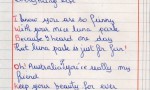 I know you are so funny
with your nice luna park
Because I heard one day
that luna park is just for fun!
Oh! Australia you're really my
friend
keep your beauty for ever